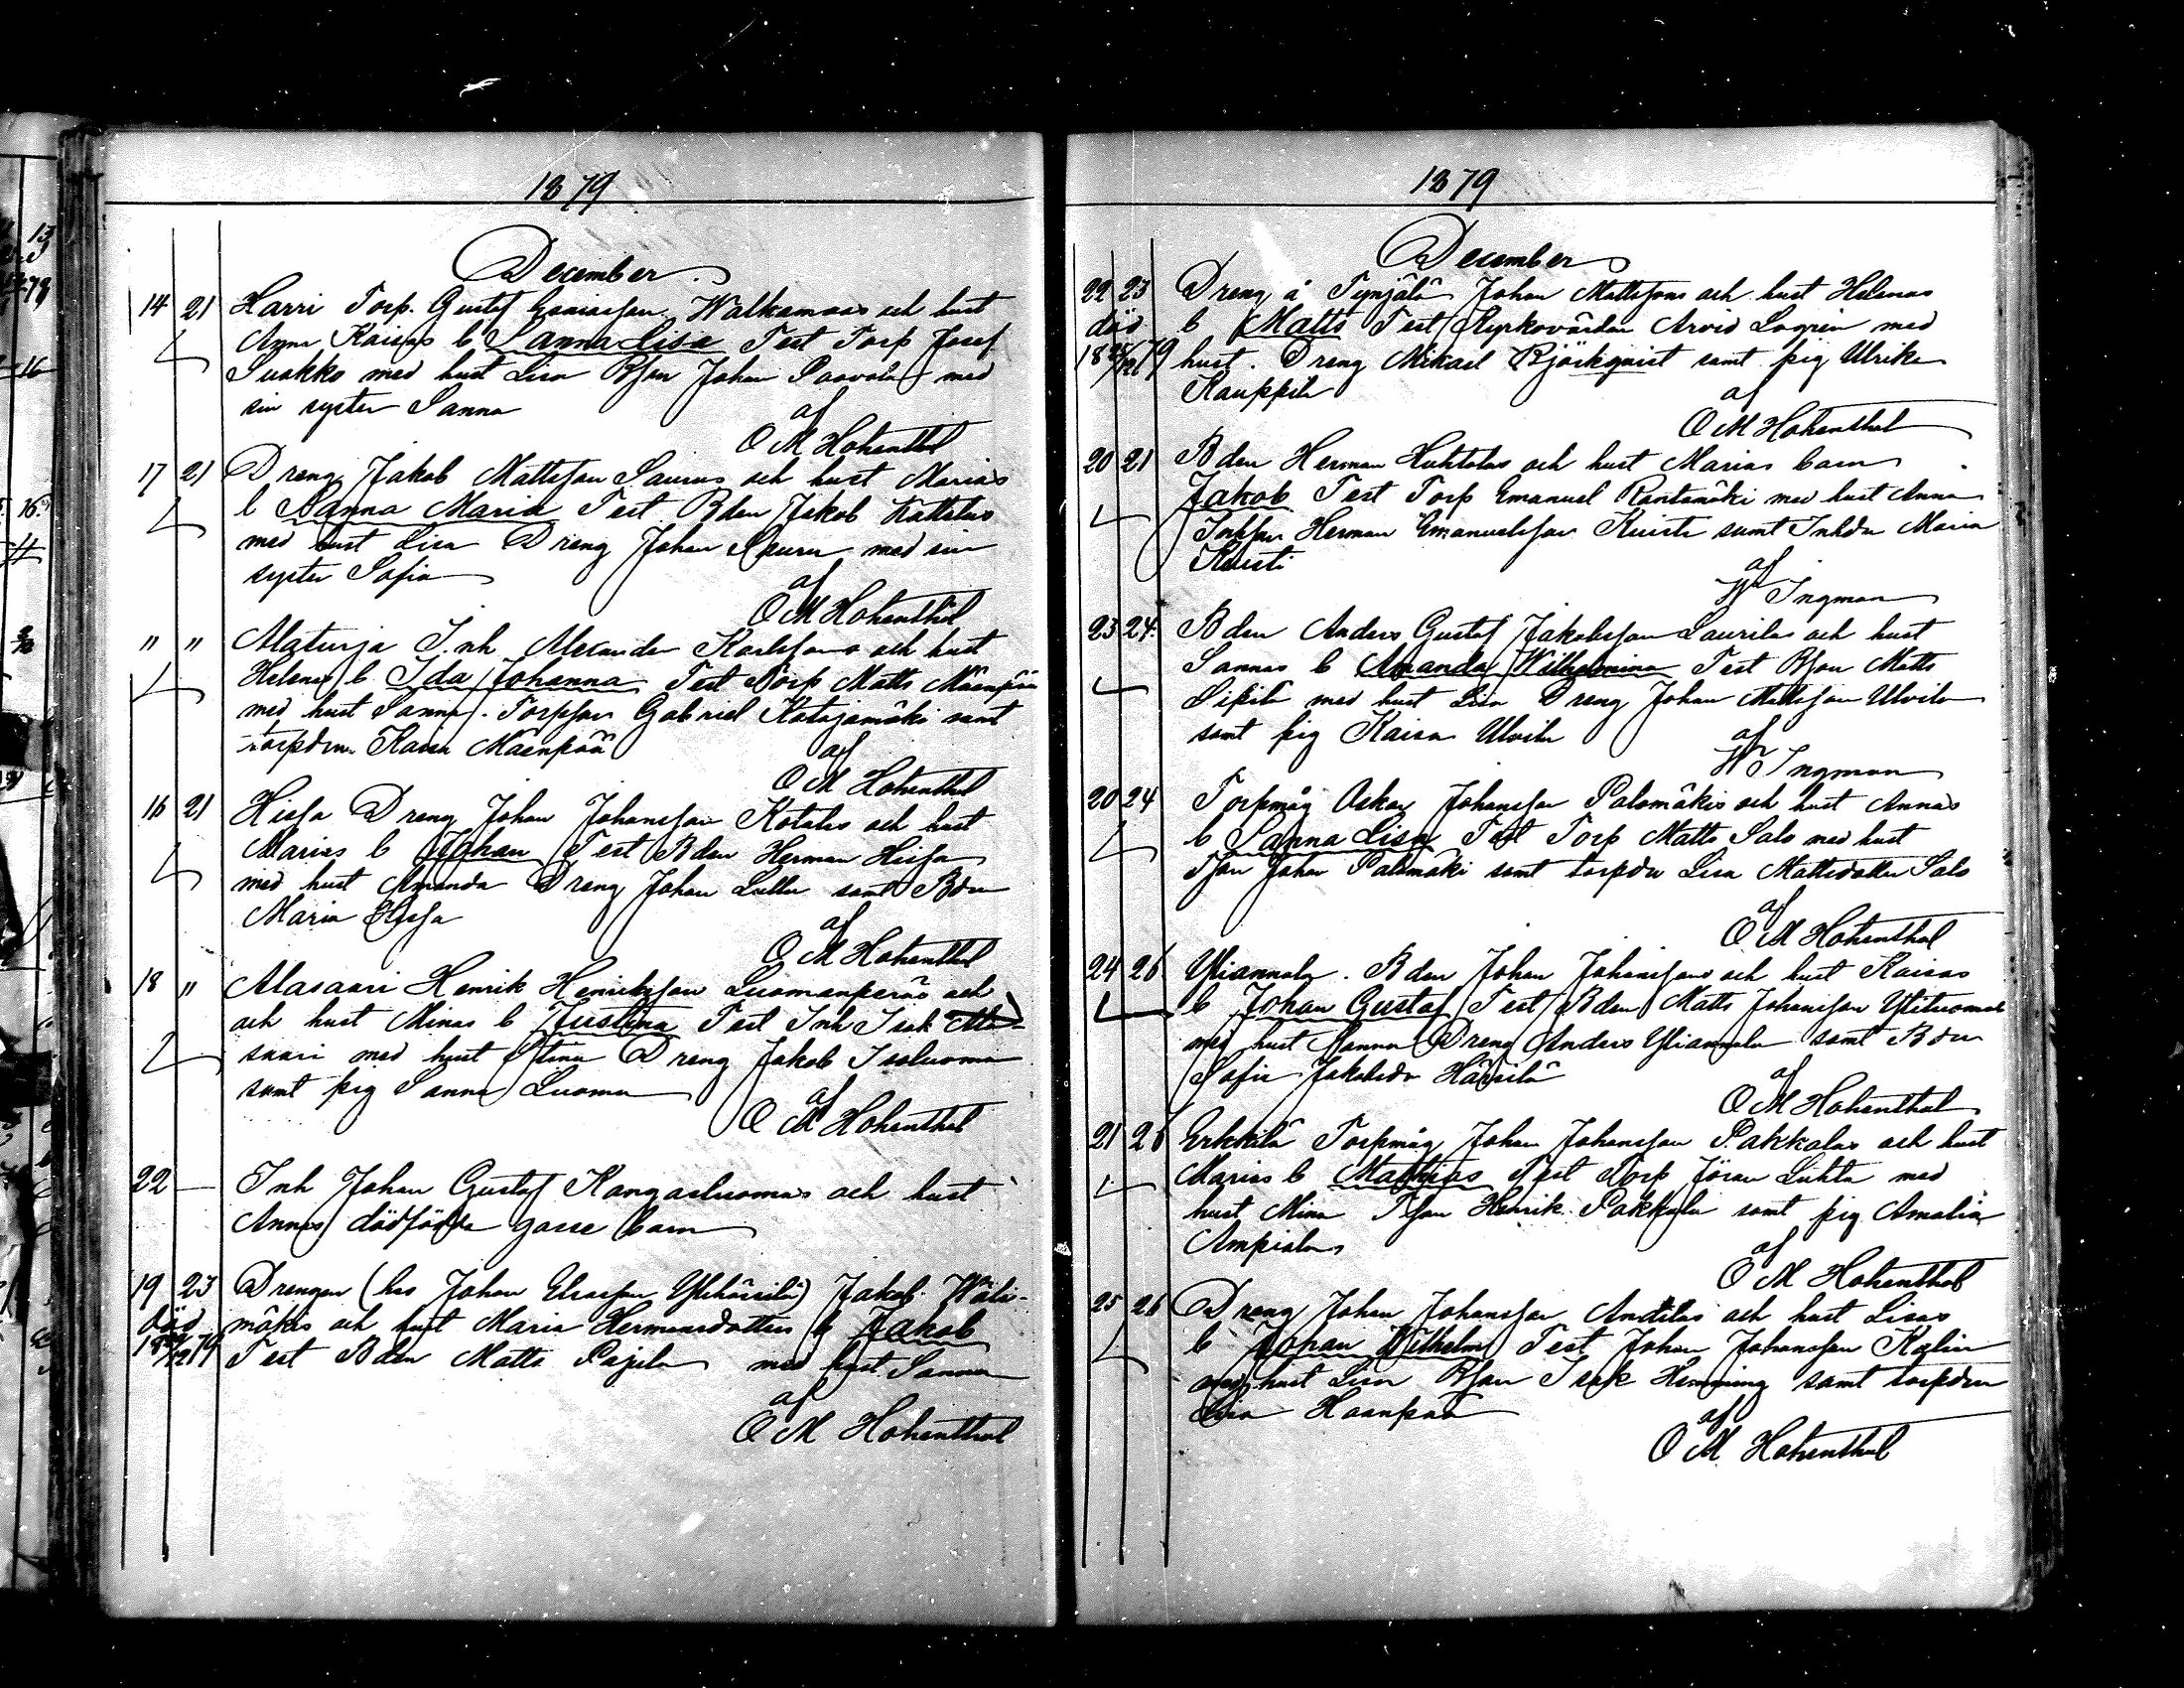 1879
December
14 21 Harri Torp. Gustaf Esaiasson Walkamas och hust
Anna Kaisas b Sanna Lisa Test Torp Josef
Suokko med hust Lisa Bson Johan Paavola med
sin syster Sanna
af
O M Hohenthal
17 21 Dreng Jakob Mattsson Saurus och hust Marias
b Sanna Maria Test Bden Jakob Kattelus
med hust Lisa Dreng Johan Sauru med sin
syster Sofia
af
O M Hohenthal
" " Alaturja Inh Alexander Karlssons och hust
Helenas b Ida Johanna Test Torp Matts Mäenpää
med hust Sanna. Torpson Gabriel Katajamäki samt
torpdrn Kaisa Mäenpää
af
O M Hohenthal
16 21 Hissa Dreng Johan Johansson Kotalas och hust
Marias b Johan Test Bden Herman Hissa
med hust Amanda Dreng Johan Lullu samt Bdr
Maria Hissa
af
O M Hohenthal
18 " Alasaari Henrik Henriksson Luomanperäs och
och hust Minas b Justina Test Inh Isak Ala-
saari med hust Stina Dreng Jakob Isoluoma
samt pig Sanna Luoma
af
O M Hohenthal
22 — Inh Johan Gustaf Kangasluomas och hust
Annas dödfödda gosse barn
19 23 Drengen (hos Johan Eliasson Ylihärsilä) Jakob Wäli-
död mäkis och hust Maria Hermansdotters b Jakob
Test Bden Matts Pajula med hust Sanna
af
O M Hohenthal
1879
December
22 23 Dreng å Tynjälä Johan Mattssons och hust Helenas
död b Matts Test Kyrkovärden Arvid Lagren med
hust. Dreng Mikael Björkqvist samt pig Ulrika
Kauppila
af
O M Hohenthal
20 21 Bden Herman Huhtalas och hust Marias barn
Jakob Test Torp Emanuel Rantamäki med hust Anna
Inhson Herman Emanuelsson Kuisti samt Inhdr Maria
Kuisti
af
W Ingman
23 24 Bden Anders Gustaf Jakobsson Laurilas och hust
Sannas b Amanda Wilhelmina Test Bson Matts
Sipilä med hust Lisa Dreng Johan Mattsson Ulvila
samt pig Kaisa Ulvila
af
W Ingman
20 24 Torpmåg Oskar Johansson Palomäkis och hust Annas
b Sanna Lisa Test Torp Matts Salo med hust
Tson Johan Palomäki samt torpdr Lisa Mattsdotter Salo
af
O M Hohenthal
24 26 Yliannala. Bden Johan Johanssons och hust Kaisas
b Johan Gustaf Test Bden Matts Johansson Ylituomala
med hust Sanna Dreng Anders Yliannala samt Bdr
Sofia Jakobsdr Härsilä
af
O M Hohenthal
21 26 Erkkilä Torpmåg Johan Johansson Pakkalas och hust
Marias b Mathias Test Torp Jöran Luhta med
hust Mina Tson Henrik Pakkala samt pig Amalia
Ampiala
af
O M Hohenthal
25 26 Dreng Johan Johansson Anttilas och hust Lisas
b Johan Wilhelm Test Johan Johansson Kylin
med hust Lisa Bson Isak Hemming samt torpdrn
Lisa Haanpää
af
O M Hohenthal